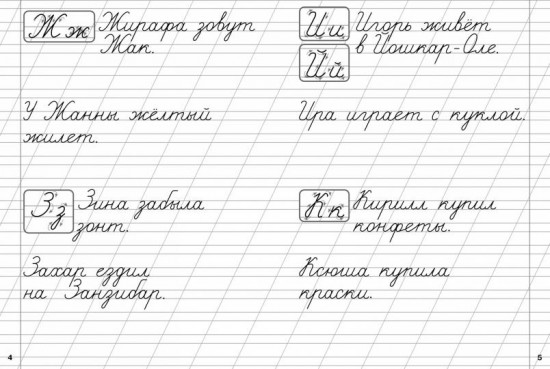 Ж ж Жирафа зовут
Жак.
У Жанны жёлтый
жилет.
З з Зина забыла
зонт.
Захар ездил
на Занзибар.
4
И и Игорь живёт
Й й в Йошкар-Оле.
Ира играет с куклой.
К к Кирилл купил
конфеты.
Ксюша купила
краски.
5